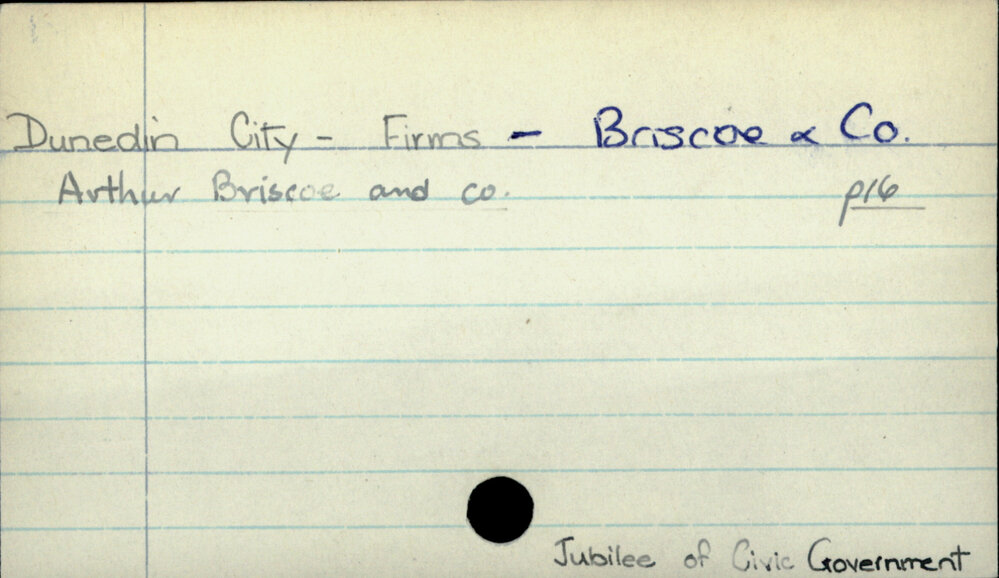 Dunedin City - Firms - Briscoe & Co.
Arthur Briscoe and co. p16
Jubilee of Civic Government